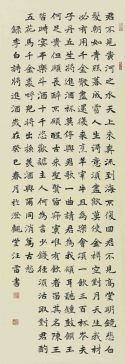 君不見黃河之水天上來奔流到海不復回君不見高堂明鏡悲白
髮朝如青絲暮成雪人生得意須盡歡莫使金樽空對月天生我材
必有用千金散盡還復來烹羊宰牛且為樂會須一飲三百杯岑夫
子丹丘生將進酒杯莫停與君歌一曲請君為我傾耳聽鐘鼓饌玉
何足貴但願長醉不願醒古來聖賢皆寂寞惟有飲者留其名陳王
昔時宴平樂斗酒十千恣歡謔主人何為言少錢徑須沽取對君酌
五花馬千金裘呼兒將出換美酒與爾同銷萬古愁
錄李白詩將進酒歲在癸巳春月於澄觀堂汪雷書